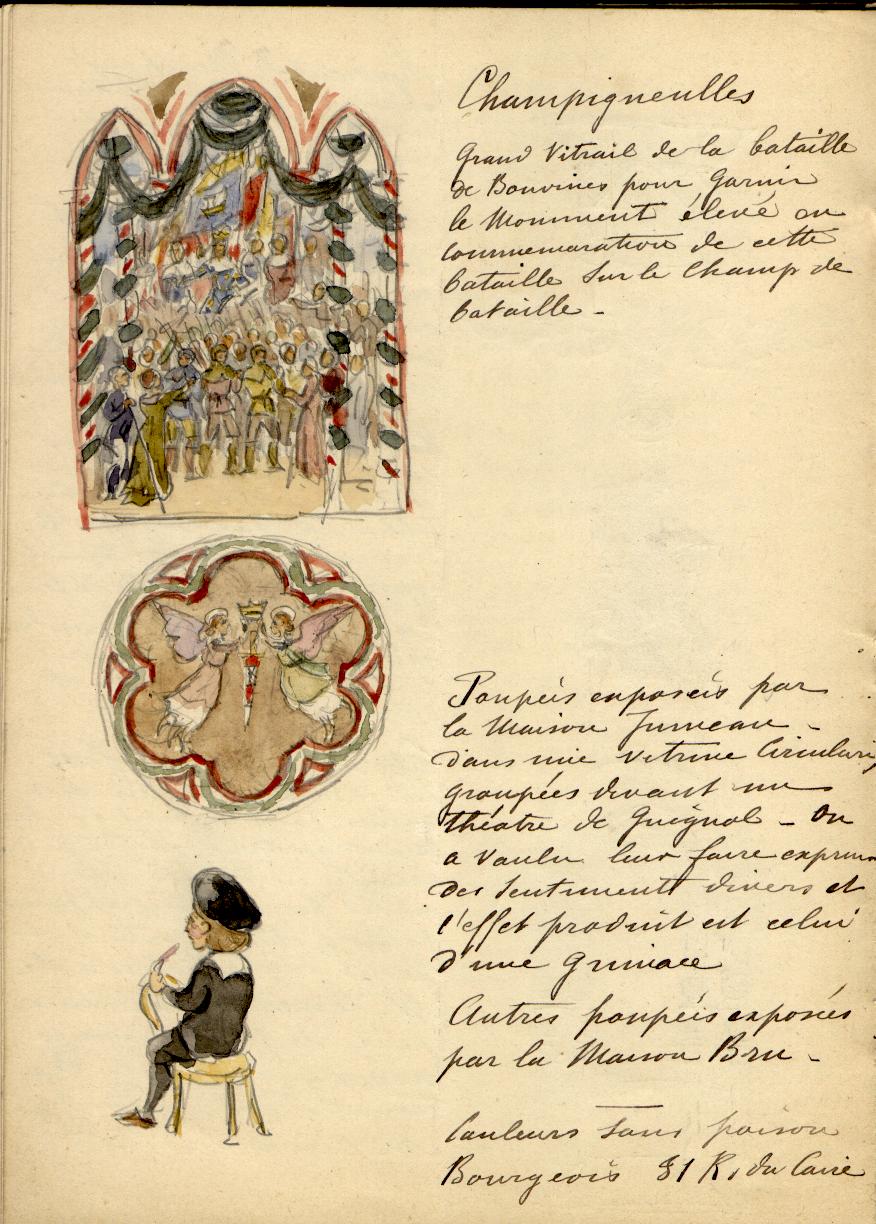 Champigneulles
Grand Vitrail de la bataille
de Bouvines pour garnir
le Monument élevé en
commemoration de cette
bataille sur le Champ de
bataille -
Poupées exposées par
la Maison Jumeau -
dans une vitrine Circulaire,
groupées devant un
théâtre de Guignol - On
a voulu leur faire exprim
des sentiments divers et
l'effet produit est celui
d'une Grimace
Autres poupées exposées
par la Maison Bru -
Couleurs sans poison
Bourgeois 31 R. du Caire